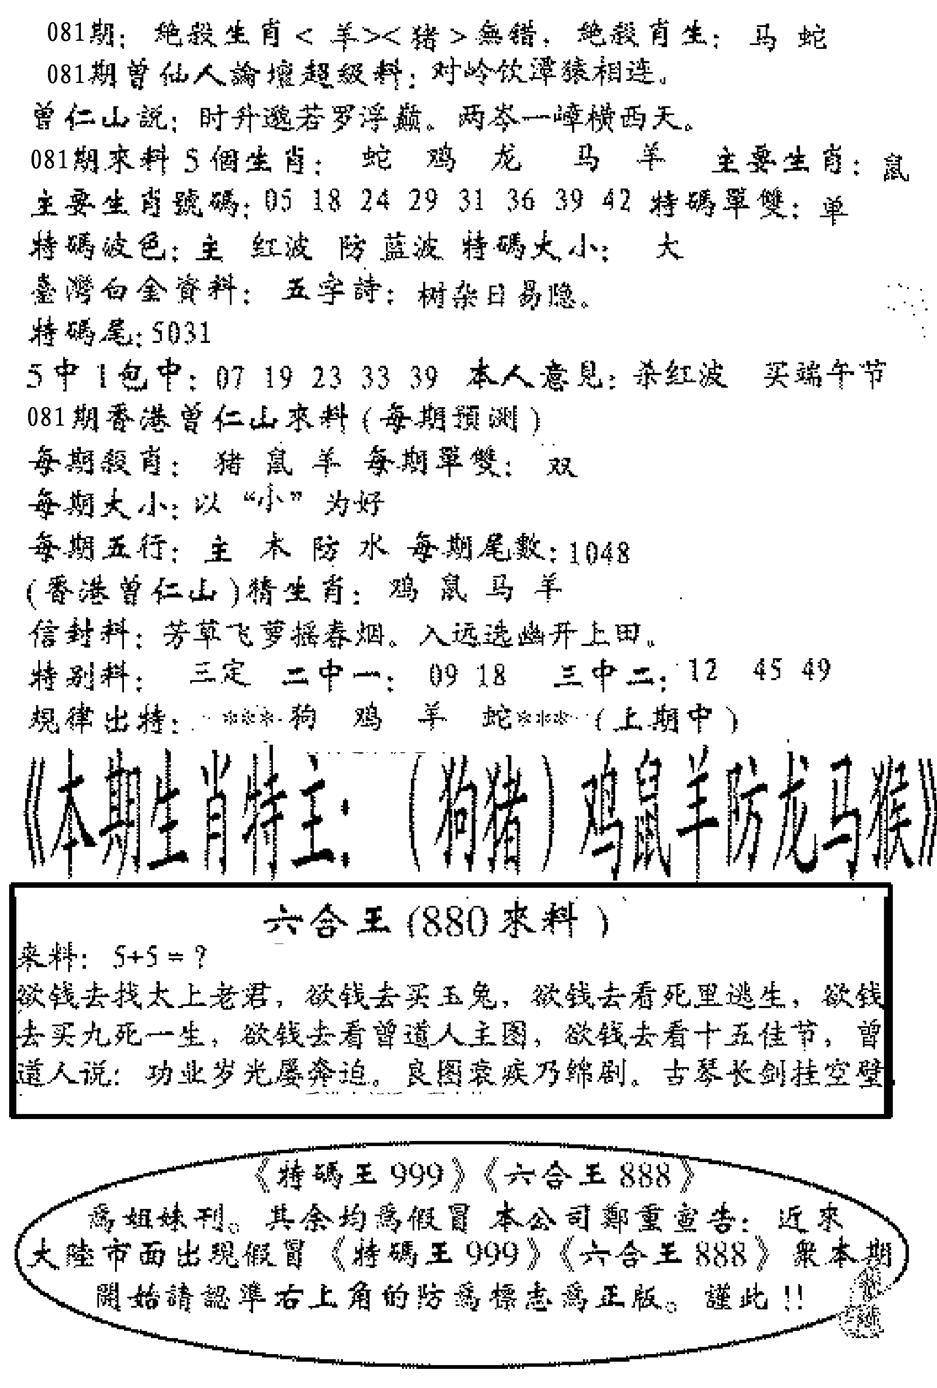 081期：絶殺生肖< 羊><猪 >無錯，絶殺肖生：马 蛇
081期曾仙人論壇超級料：对岭饮潭猿相连。
曾仁山説：时升邈若罗浮巅。两岑一嶂横西天。
081期來料 5 個生肖： 蛇 鸡 龙 马 羊 主要生肖：鼠
主要生肖號碼：05 18 24 29 31 36 39 42 特碼單雙：单
特碼波色：主 红波 防 蓝波 特碼大小： 大
臺灣白金資料：五字詩：树杂日易隐。
特碼尾：5031
5 中 1 包中：07 19 23 33 39 本人意見：杀红波 买端午节
081期香港曾仁山來料（每期預測）
每期殺肖： 猪 鼠 羊 每期單雙： 双
每期大小：以 “小” 为好
每期五行：主 木 防 水 每期尾數：1048
（香港曾仁山）猜生肖：鸡 鼠 马 羊
信封料：芳草飞萝摇春烟。入远迭幽开上田。
特别料： 三定 二中一： 09 18 三中二：12 45 49
規律出特： ***狗 鸡 羊 蛇***（上期中）
《本期生肖特主：（狗猪）鸡鼠羊防龙马猴》
六合王(880來料）
来料： 5+5 = ?
欲钱去找太上老君，欲钱去买玉兔，欲钱去看死里逃生，欲钱
去买九死一生，欲钱去看曾道人主图，欲钱去看十五佳节，曾
道人说：功业岁光屡奔迫。良图衰疾乃绵剧。古琴长剑挂空壁
《特碼王 999》《六合王 888》
爲姐妹刊。其余均爲假冒 本公司鄭重宣告：近來
大陸市面出現假冒《特碼王 999》《六合王 888》衆本期
開始請認準右上角的防爲標志爲正版。謹此 !!